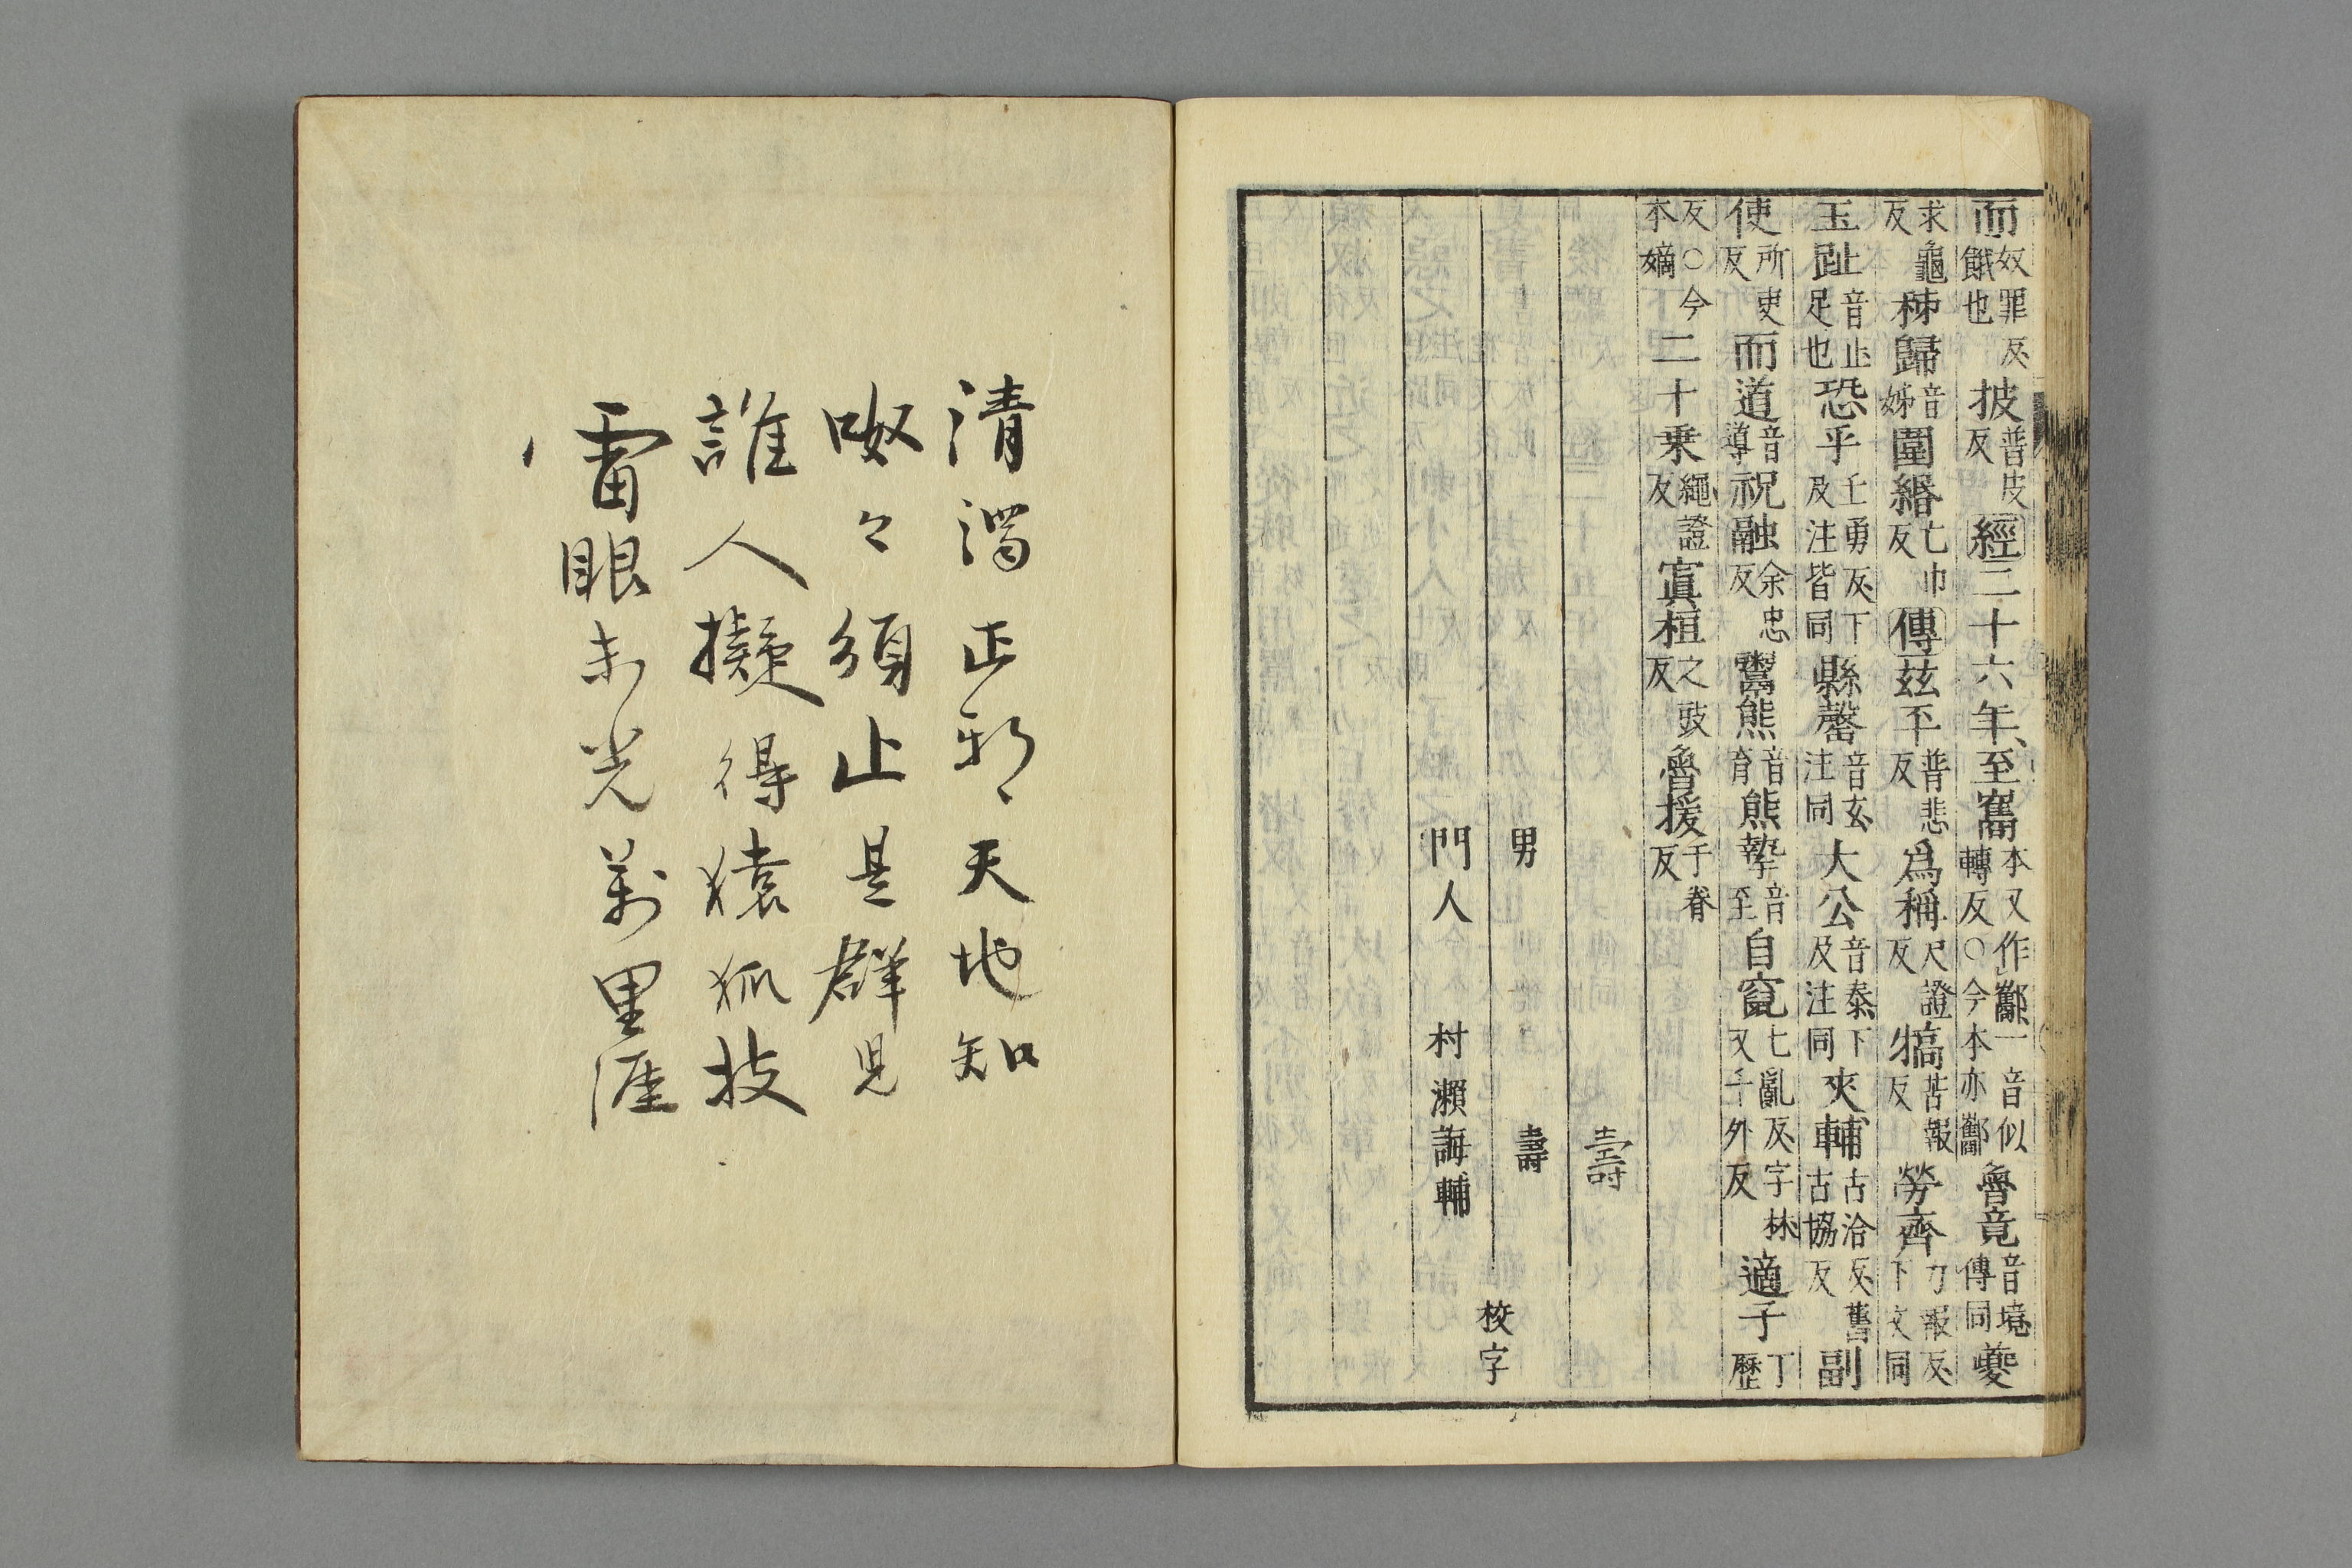 而奴罪反餓也披普皮反經二十六年、至寯本又作酅一音似轉反○今本亦酅魯竟音境傳同夔
求龜反秭歸音姊圍緡亡巾反傳茲丕普悲反爲稱尺證反犒苦報反勞齊力報反下文同
玉趾音止足也恐乎丘勇反下及注皆同縣罄音玄注同大公音泰下及注同夾輔古洽反舊古協反副
使所吏反而道音導祝融余忠反鬻熊音育熊摯音至自竄七亂反字林又千外反適子丁歷
反○今本嫡二十乗繩證反寘桓之豉反魯援于眷反
壽
男 壽
校字
門人 村瀨誨輔
清濁正邪天地知
呶々須止是群児
誰人擬得猿狐技
雷眼未光萬里涯